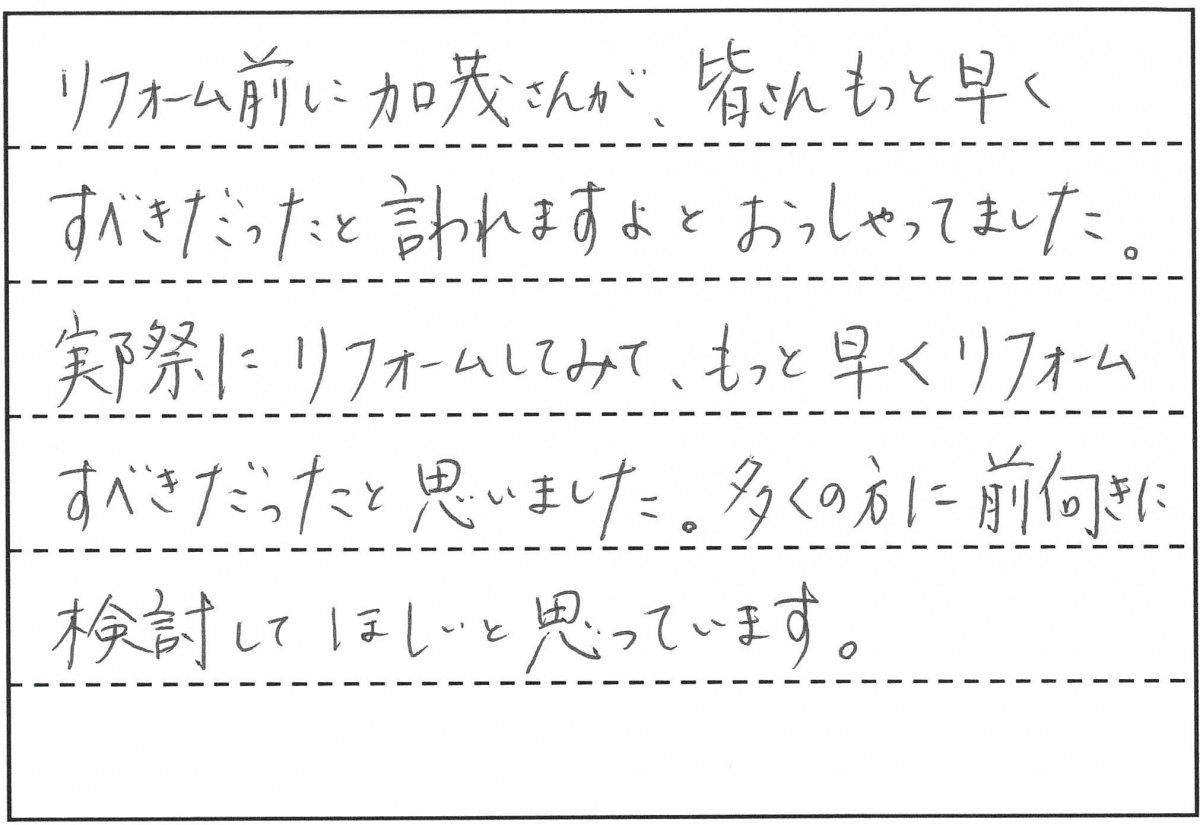 リフォーム前に加茂さんが、皆さんもっと早く
すべきだったと言われますよとおっしゃってました。
実際にリフォームしてみて、もっと早くリフォーム
すべきだったと思いました。多くの方に前向きに
検討してほしいと思っています。